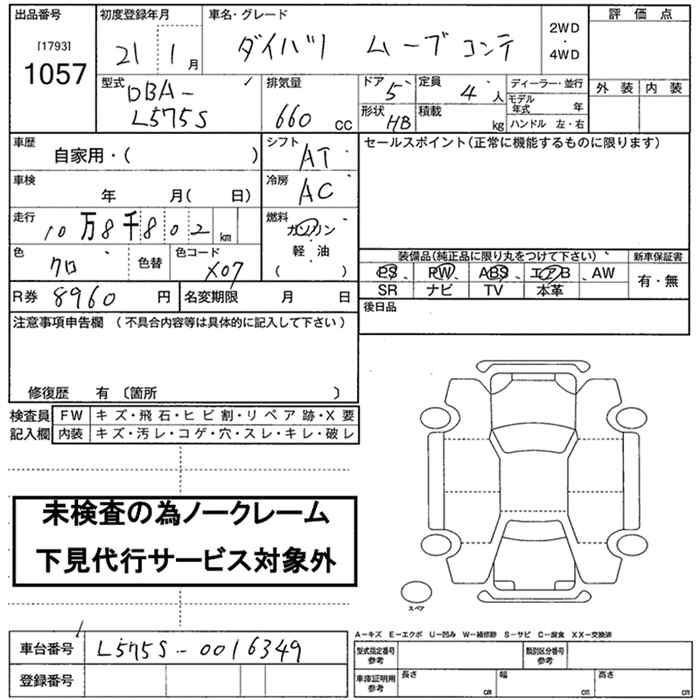 出品番号 初度登録年月 車名・グレード 評価点
[1793] 1057 21 1 月 ダイハツ ムーブコンテ 2WD・4WD
型式 排気量 ドア 5 定員 4 人 ディーラー・並行 外装 内装
DBA- L575S 660 cc 形状 HB 積載 kg モデル年式 年
ハンドル 左・右
車歴 自家用・( ) シフト AT セールスポイント(正常に機能するものに限ります)
車検 年 月( 日) 冷房 AC
走行 10万8千802 km 燃料 ガソリン
軽油
( )
色 クロ 色替 色コード X07 装備品(純正品に限り丸をつけて下さい) 新車保証書
PS PW ABS エアB AW 有・無
R券 8960 円 名変期限 月 日 SR ナビ TV 本革
注意事項申告欄 (不具合内容等は具体的に記入して下さい) 後日品
修復歴 有 〔箇所 )
検査員 FW キズ・飛石・ヒビ割・リペア跡・X要
記入欄 内装 キズ・汚レ・コゲ・穴・スレ・キレ・破レ
未検査の為ノークレーム
下見代行サービス対象外
スペア
A-キズ E-エクボ U-凹み W-補修跡 S-サビ C-腐食 XX-交換済
車台番号 L575S-0016349 型式指定番号 参考 類別区分番号 参考
登録番号 車庫証明用 参考 長さ cm 幅 cm 高さ cm